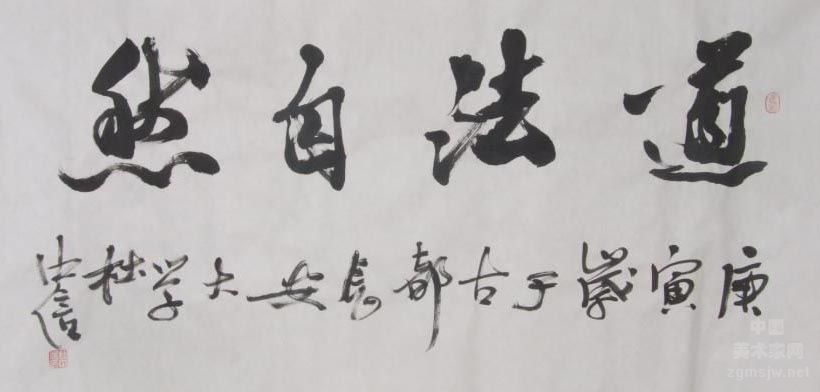 道法自然
庚寅歲于古都長安大学杜中信
中国
美术家网
zgmsjw.net